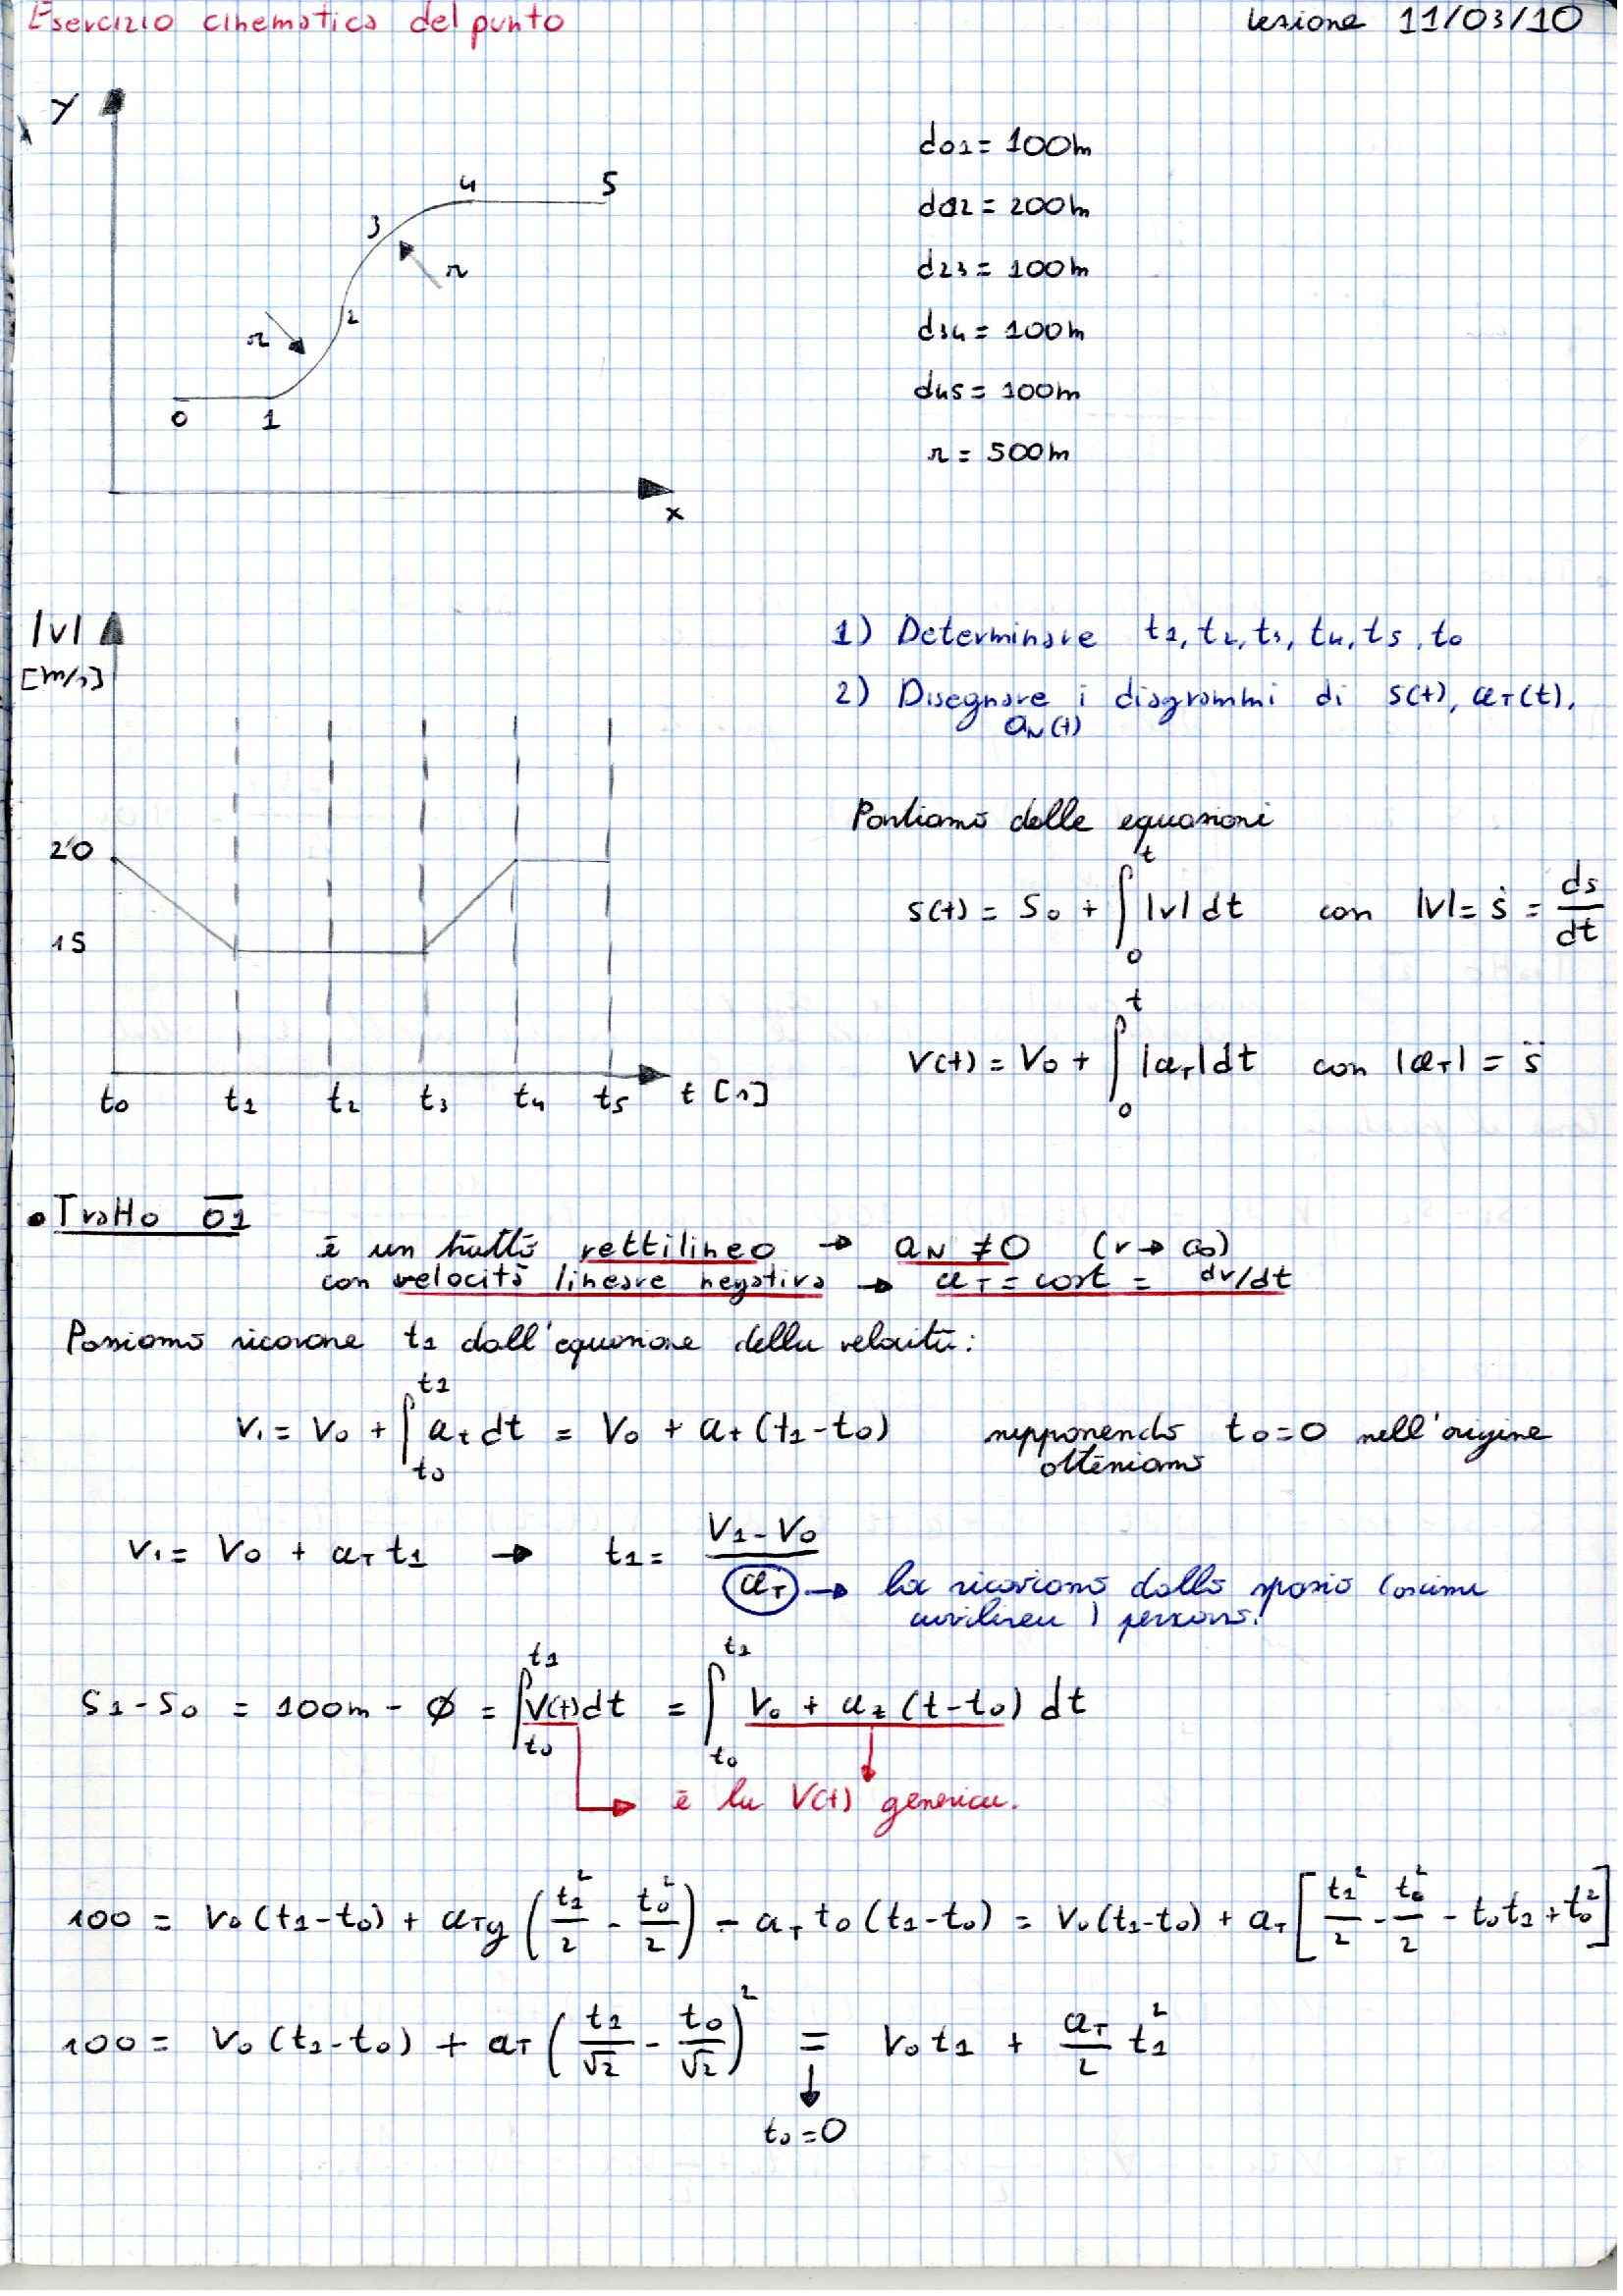 Esercizio cinematica del punto
lezione 11/03/10
y
4 5
3
r
2
r
0 1
x
d01 = 100m
d12 = 200m
d23 = 100m
d34 = 100m
d45 = 100m
r = 500m
|v|
[m/s]
20
15
t0 t1 t2 t3 t4 t5 t [s]
1) Determinare t1, t2, t3, t4, t5, t0
2) Disegnare i diagrammi di s(t), aT(t),
aN(t)
Partiamo dalle equazioni
s(t) = S0 + ∫0^t |v| dt con |v| = ṡ = ds/dt
V(t) = V0 + ∫0^t |aT| dt con |aT| = s̈
• Tratto 01
è un tratto rettilineo → aN ≠ 0 (r → ∞)
con velocità lineare negativa → aT = cost = dv/dt
Possiamo ricavare t1 dall'equazione della velocità:
V1 = V0 + ∫t0^t1 at dt = V0 + at (t1 - t0) supponendo t0 = 0 nell'origine
otteniamo
V1 = V0 + aT t1 → t1 = (V1 - V0) / aT → la ricaviamo dallo spazio (ascissa
curvilinea) percorso.
S1 - S0 = 100m - ∅ = ∫t0^t1 V(t) dt = ∫t0^t1 V0 + at (t - t0) dt
è la V(t) generica.
100 = V0 (t1 - t0) + aTy (t1²/2 - t0²/2) - aT t0 (t1 - t0) = V0 (t1 - t0) + aT [t1²/2 - t0²/2 - t0 t1 + t0²]
100 = V0 (t1 - t0) + aT (t1/√2 - t0/√2)² = V0 t1 + aT/2 t1²
t0 = 0